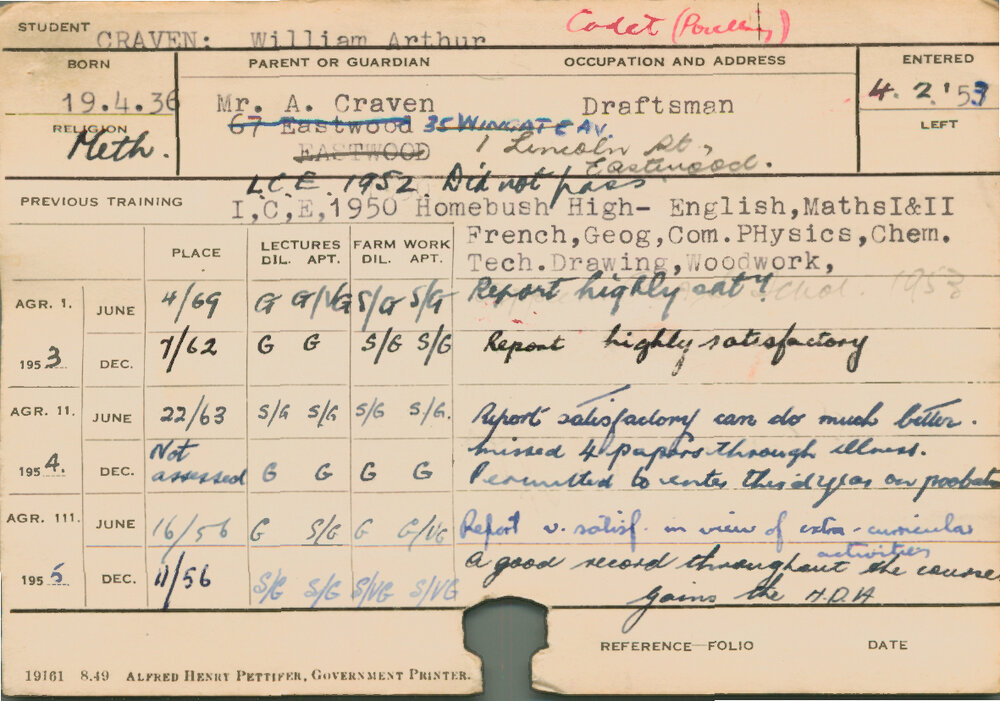 STUDENT CRAVEN: William Arthur Cadet (Poultry)
BORN PARENT OR GUARDIAN OCCUPATION AND ADDRESS ENTERED
19.4.36 Mr. A. Craven Draftsman 4. 2. '53
RELIGION 67 Eastwood 35 WINGATE AV. LEFT
Meth. EASTWOOD 1 Lincoln St,
Eastwood.
L.C.E. 1952. Did not pass
PREVIOUS TRAINING I,C,E,1950 Homebush High- English,MathsI&II
French,Geog,Com.PHysics,Chem.
Tech.Drawing,Woodwork,
PLACE LECTURES FARM WORK
DIL. APT. DIL. APT.
AGR. 1. JUNE 4/69 G G/VG S/G S/G Report highly sat y 1953
1953 DEC. 7/62 G G S/G S/G Report highly satisfactory
AGR. 11. JUNE 22/63 S/G S/G S/G S/G. Report satisfactory can do much better.
missed 4 papers through illness.
1954. DEC. Not assessed G G G G Permitted to enter third year on probation
AGR. 111. JUNE 16/56 G S/G G G/VG Report v. satisf. in view of extra-curricular
activities
1955 DEC. 11/56 S/G S/G S/VG S/VG A good record throughout the course
Gains the H.D.A
REFERENCE-FOLIO DATE
19161 8.49 ALFRED HENRY PETTIFER, GOVERNMENT PRINTER.